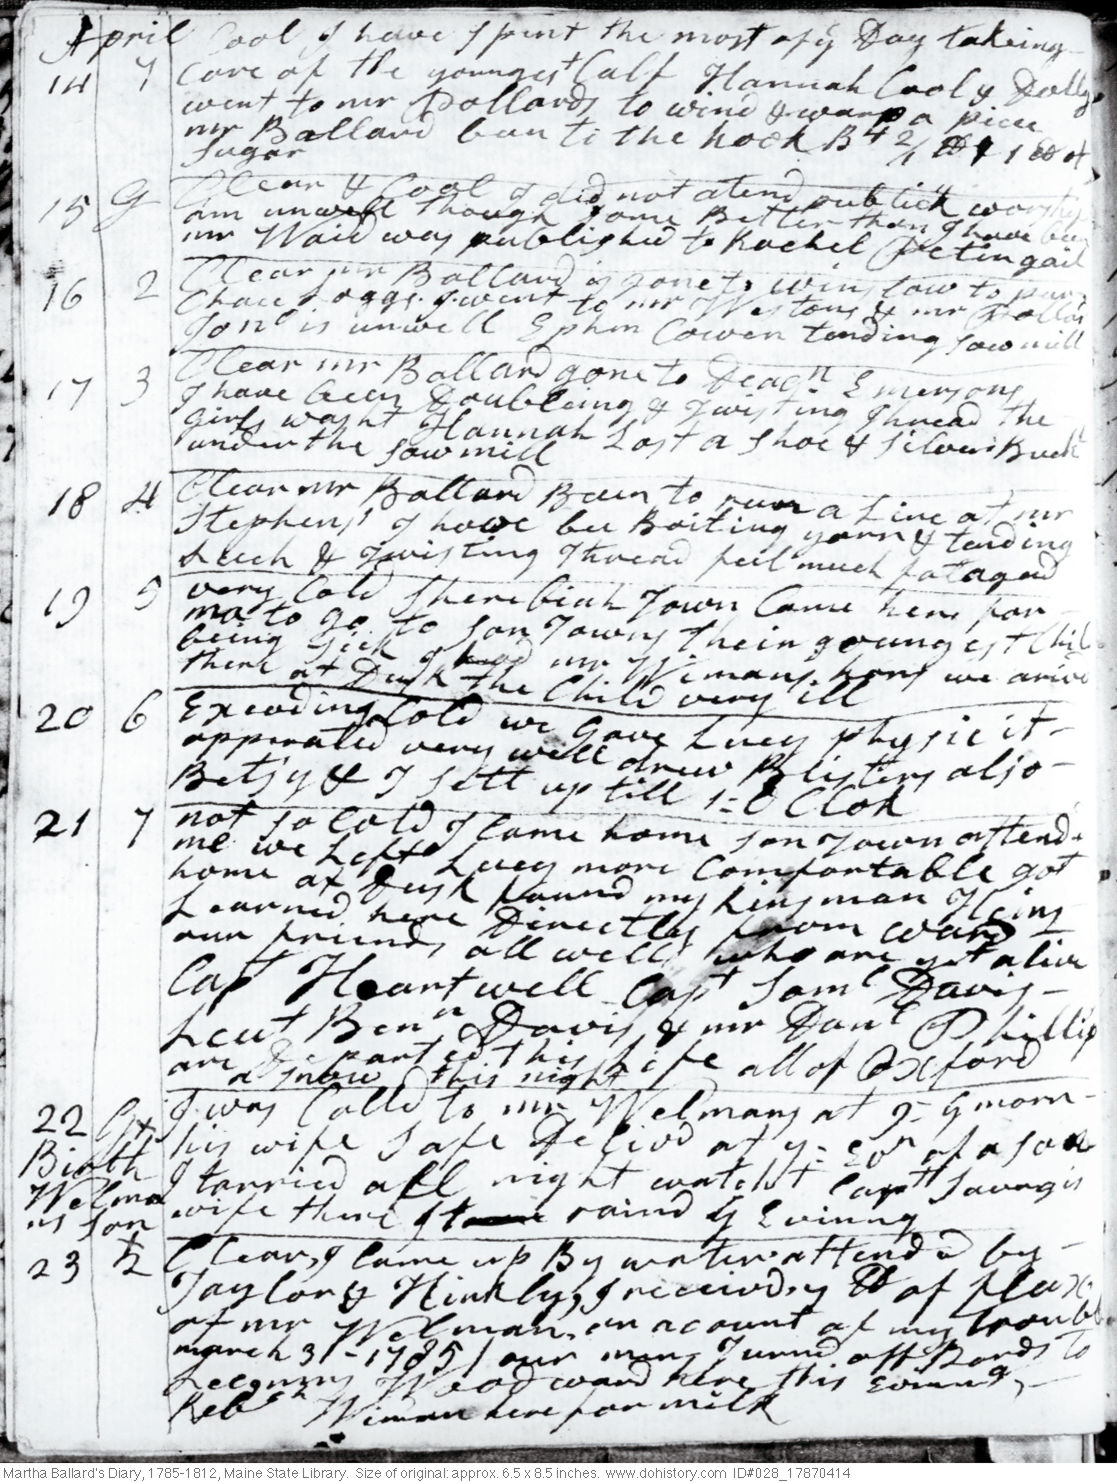 April Cool I have Spent the most of ye Day takeing
14 7 Care of the youngest Calf Hannah Cool & Dolly
went to mr Pollards to wind & warp a piece
mr Ballard been to the hook B
Sugar
15 G Clear & Cool I did not atend publick worship
am unwell though Some Better than I have been
mr Waid was published to Rachel Petingail
16 2 Clear mr Ballard is gone to winslow to
Logs. I went to mr Westons & mr Pollards
Jona is unwell Ephm Cowen tending sawmill
17 3 Clear mr Ballard gone to Deacn Emersons
I have been Doubleing & Twisting Thread the
girls washt Hannah Lost a Shoe & Silver Buckl
under the sawmill
18 4 Clear mr Ballard Been to run a Line at mr
Stephens' I have be Boiling yarn & tending
Leech & Twisting Thread feel much fatagud
19 5 very Cold Sherebiah Town Came here for
me to go to Son Towns their youngest Chil
being sick I had mr Wimans hors we arivd
there at Dusk the Child very ill
20 6 Exceeding Cold we gave Lucy physic it
opperated very well drew Blisters also
Betsy & I sett up till 1=0 Clok
21 7 not so Cold I Came home Son Town attend
me we Left Lucy more Comfortable got
home at Dusk found my kinsman
Learned here Directly from ward
our friends all well who are yet alive
Capt Heartwell Capt Saml Davis
Leut Benn Davis & mr Danl Phillip
are Departed this Life all of Oxford
a snow this night
22 G I was Calld to mr Welmans at 9= G morn
Birth his wife Safe Delivd at of a son
Welma I tarried all night watcht Capt Savagis
ns son wife there raind ye Evinng
23 2 Clear, I Came up By water attended by
Taylor & Hinkly, I received of flax
of mr Welman, on acount of my troubl
march 31 - 1785 / our men Turnd off Bords to
Leeguns Woodward here this evinng
Rebch Wiman here for milk
Martha Ballard's Diary, 1785-1812, Maine State Library. Size of original: approx. 6.5 x 8.5 inches. www.dohistory.com ID#028_17870414